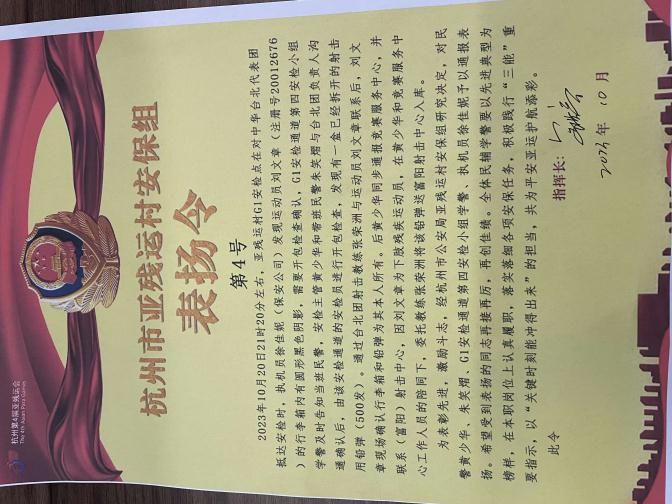 杭州第4届亚残运会
The 4th Asian Para Games
杭州市亚残运村安保组
表扬令
第4号
2023年10月20日21时20分左右，亚残运村G1安检点在对中华台北代表团
抵达安检时，执机员徐佳妮（保安公司）发现运动员刘文章（注册号20012676
）的行李箱内有圆形黑色阴影，需要开包检查确认，G1安检通道第四安检小组
学警及时告知当班民警，安检主管黄少华和带班民警朱笑熠与台北团负责人沟
通确认后，由该安检通道的安检员进行开包检查，发现有一盒已经拆开的射击
用铅弹（500发）。通过台北团射击教练张荣洲与运动员刘文章联系后，刘文
章现场确认行李箱和铅弹为其本人所有。后黄少华同步通报竞赛服务中心，并
联系（富阳）射击中心，因刘文章为下肢残疾运动员，在黄少华和竞赛服务中
心工作人员的陪同下，委托教练张荣洲将该铅弹送富阳射击中心入库。
为表彰先进，激励斗志，经杭州市公安局亚残运村安保组研究决定，对民
警黄少华、朱笑熠、G1安检通道第四安检小组学警、执机员徐佳妮予以通报表
扬。希望受到表扬的同志再接再厉，再创佳绩。全体民辅学警要以先进典型为
榜样，在本职岗位上认真履职，落实落细各项安保任务，积极践行“三能”重
要指示，以“关键时刻能冲得出来”的担当，共为平安亚运护航添彩。
此令
指挥长：
2023年 10月